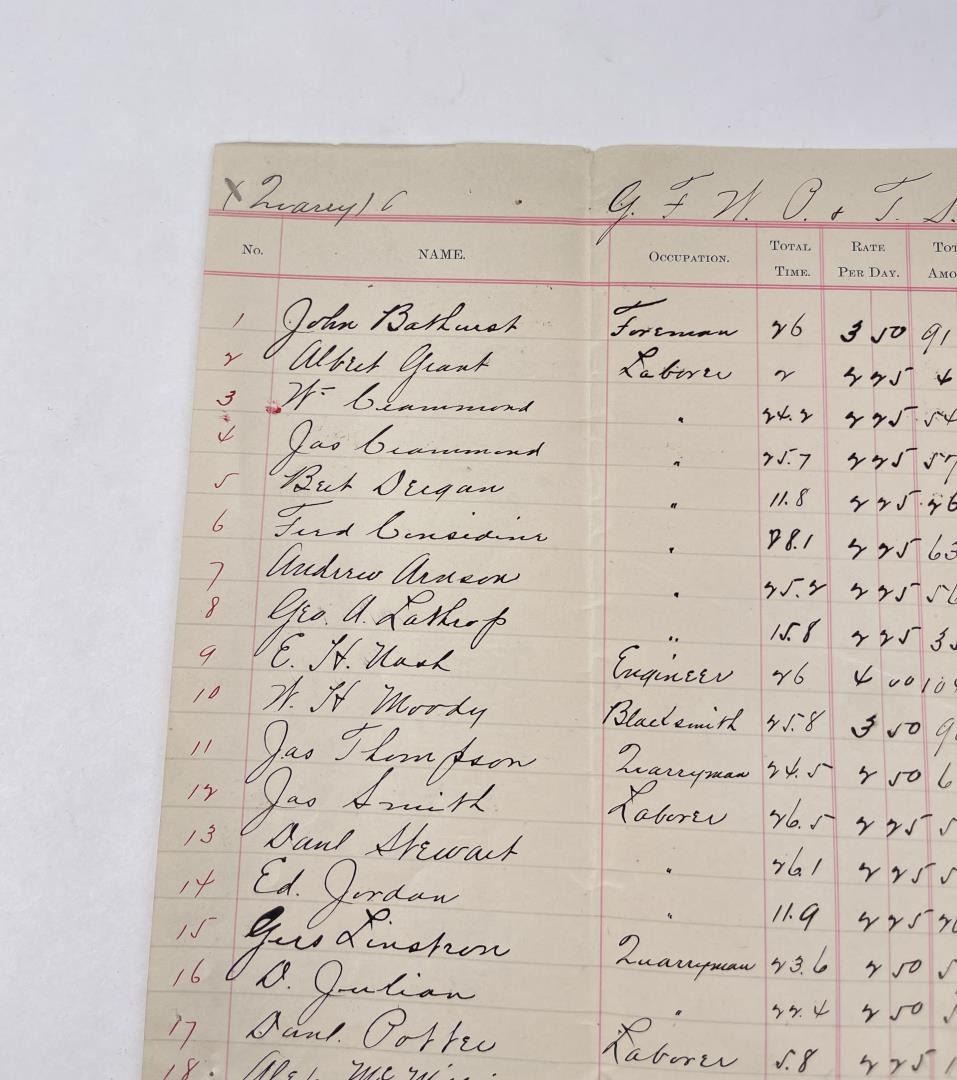 X Quarry 16 G. F. W. P. & T. S.
No. NAME. OCCUPATION. TOTAL TIME. RATE PER DAY. TOT AMO
1 John Bathurst Foreman 26 3 50 91
2 Albert Grant Laborer 2 2 25 4
3 Wm Crammond " 24.2 2 25 54
4 Jas Crammond " 25.7 2 25 57
5 Bert Deegan " 11.8 2 25 26
6 Ferd Considine " 28.1 2 25 63
7 Andrew Arnson " 25.2 2 25 56
8 Geo. A. Lathrop " 15.8 2 25 35
9 E. H. Nash Engineer 26 4 00 104
10 W. H Moody Blacksmith 25.8 3 50 9
11 Jas Thompson Quarryman 24.5 2 50 6
12 Jas Smith Laborer 26.5 2 25 5
13 Danl Stewart " 26.1 2 25 5
14 Ed. Jordan " 11.9 2 25 2
15 Gus Linstron Quarryman 23.6 2 50 5
16 D. Julian " 22.4 2 50
17 Danl. Potter Laborer 5.8 2 25 1
18 Alex Mc